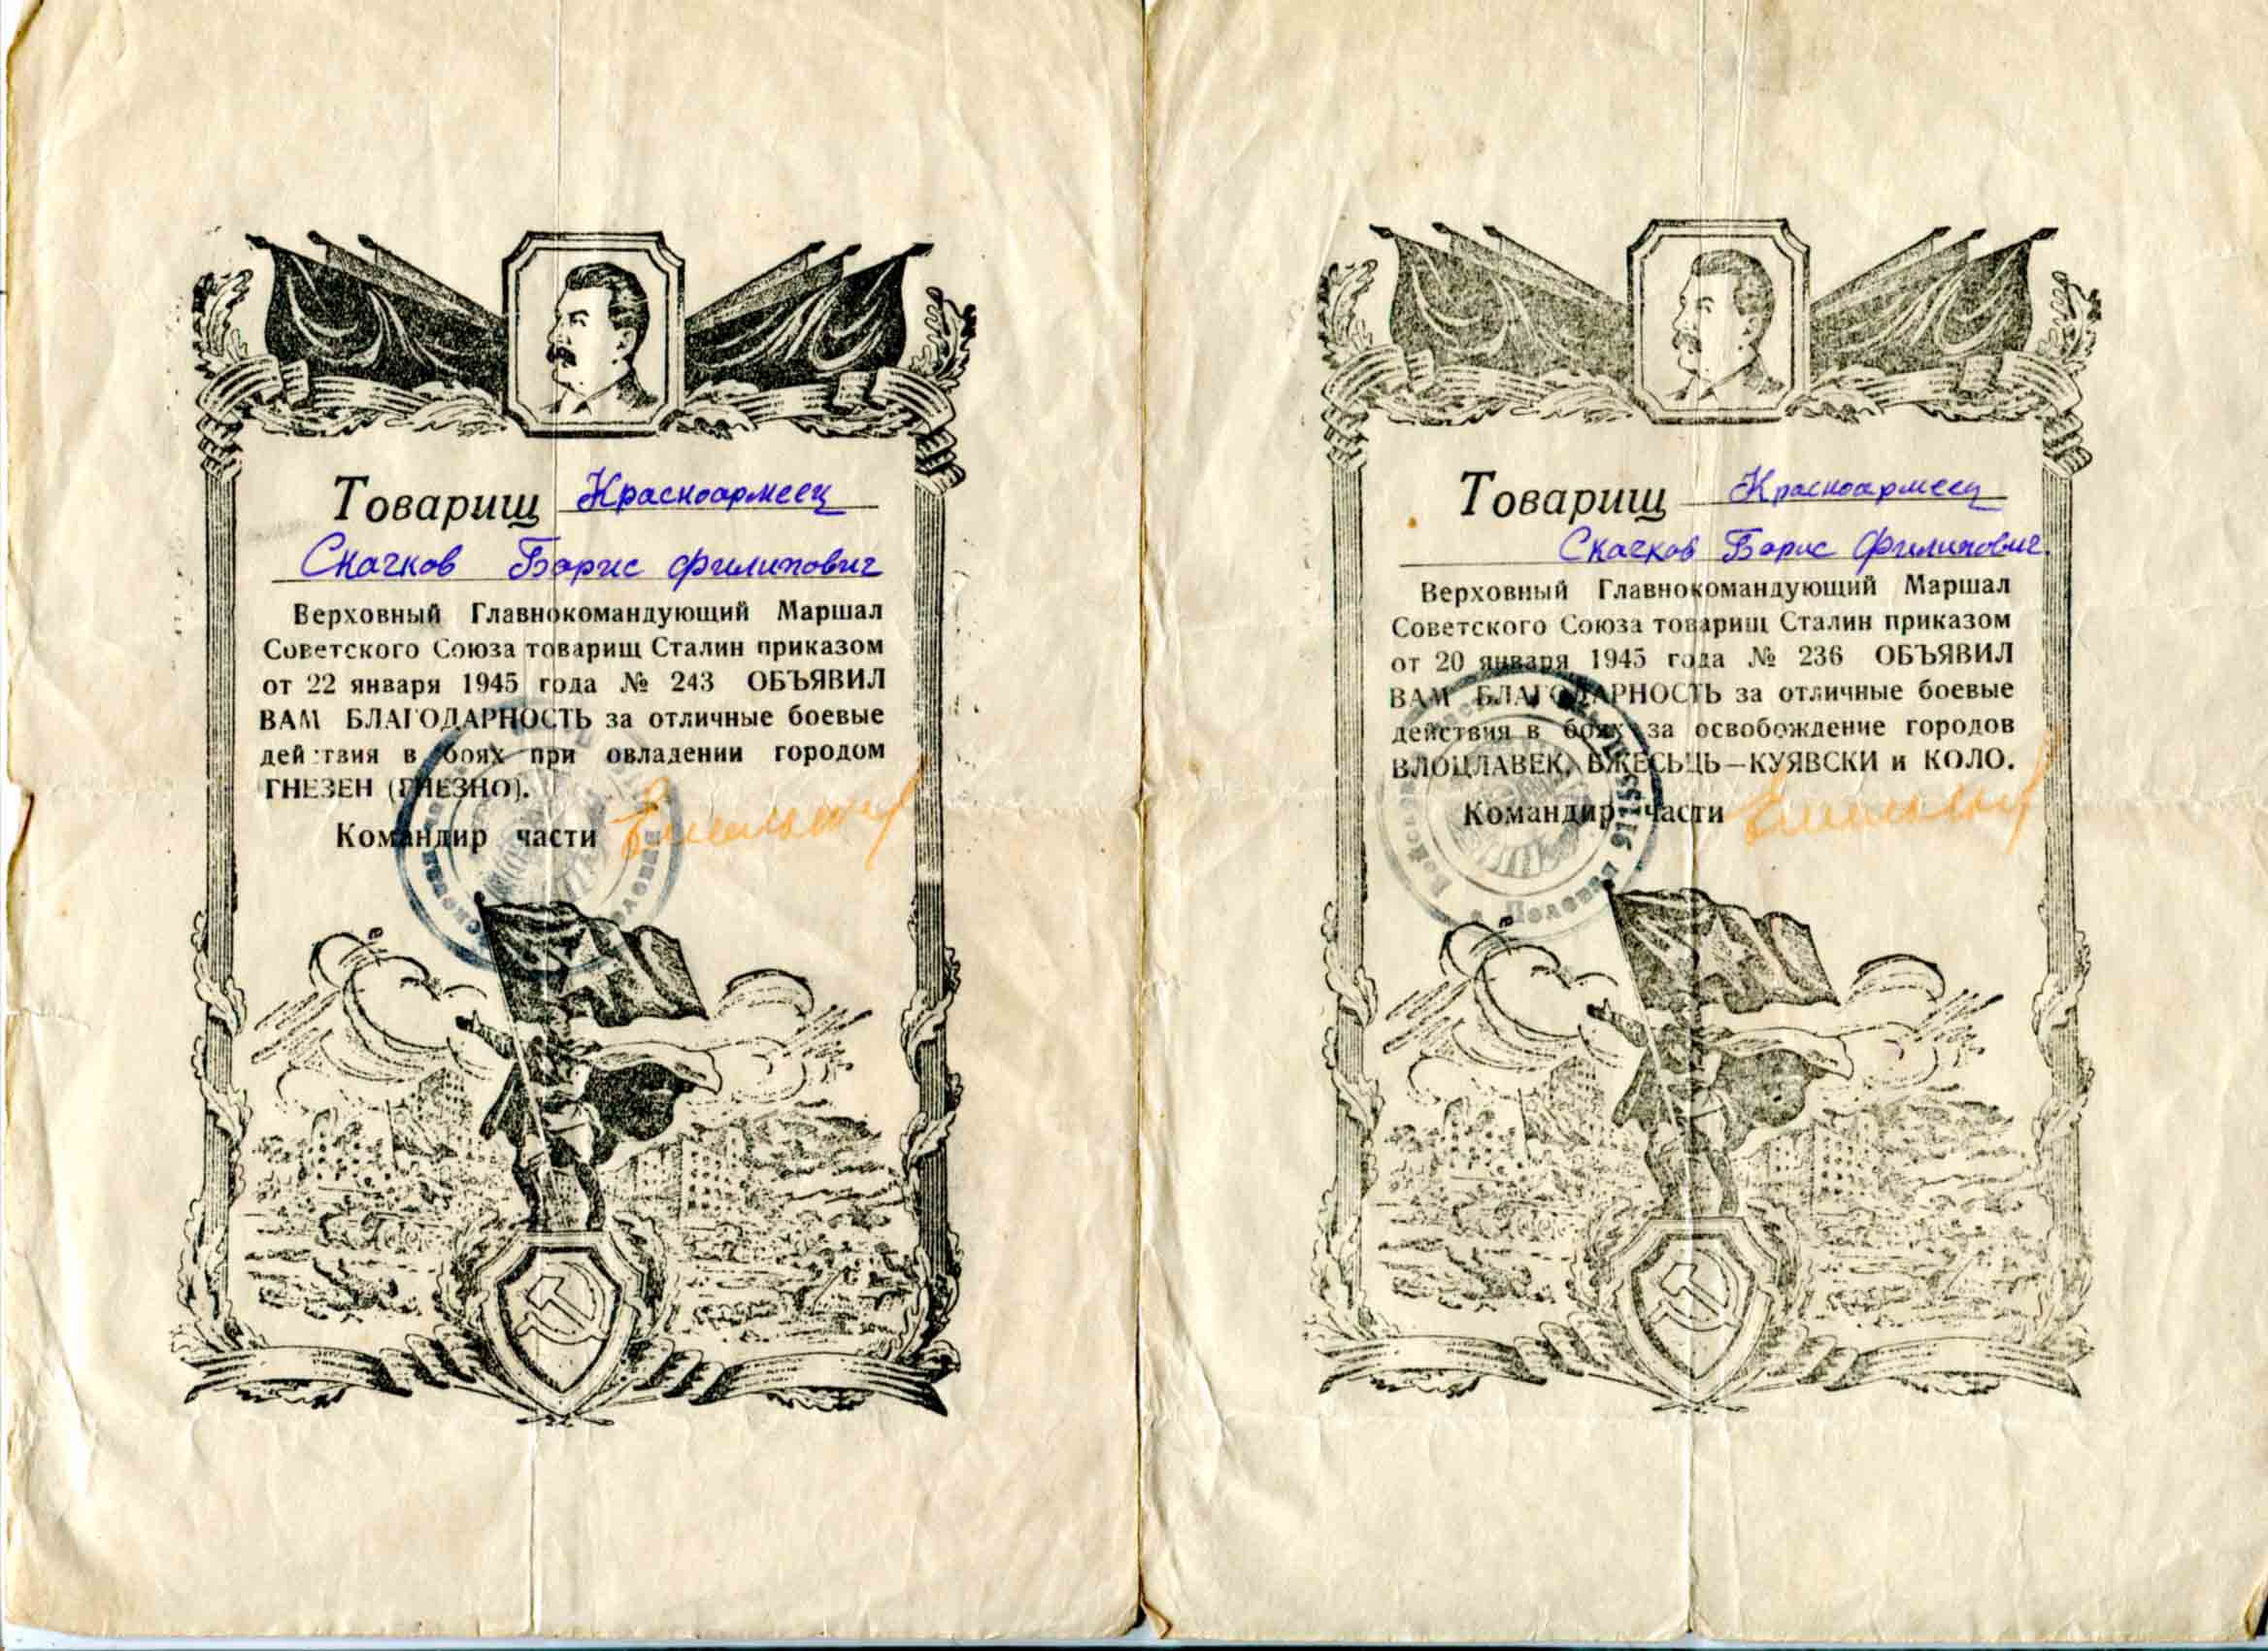 Товарищ Красноармеец
Скачков Борис Филипович
Верховный Главнокомандующий Маршал
Советского Союза товарищ Сталин приказом
от 22 января 1945 года № 243 ОБЪЯВИЛ
ВАМ БЛАГОДАРНОСТЬ за отличные боевые
действия в боях при овладении городом
ГНЕЗЕН (ГНЕЗНО).
Командир части
Товарищ Красноармеец
Скачков Борис Филипович
Верховный Главнокомандующий Маршал
Советского Союза товарищ Сталин приказом
от 20 января 1945 года № 236 ОБЪЯВИЛ
ВАМ БЛАГОДАРНОСТЬ за отличные боевые
действия в боях за освобождение городов
ВЛОЦЛАВЕК, БЖЕСЬЦЬ—КУЯВСКИ и КОЛО.
Командир части
Полевая